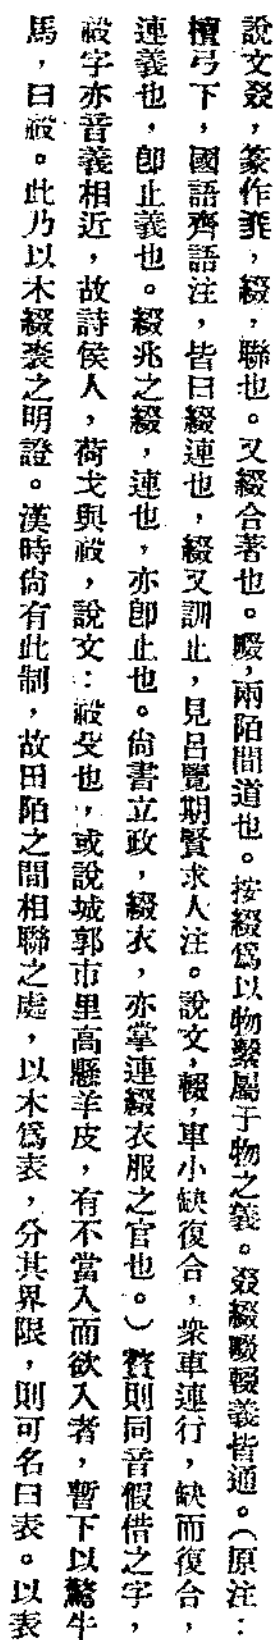 說文叕，篆作叕，綴，聯也。又綴合著也。畷，兩陌間道也。按綴爲以物繫屬于物之義。叕綴畷輟義皆通。（原注：
檀弓下，國語齊語注，皆曰綴連也，綴又訓止，見呂覽期賢求人注。說文，輟，車小缺復合，衆車連行，缺而復合，
連義也，卽止義也。綴兆之綴，連也，亦卽止也。尙書立政，綴衣，亦掌連綴衣服之官也。）贅則同音假借之字，
祋字亦音義相近，故詩侯人，荷戈與祋，說文：祋殳也，或說城郭市里高懸羊皮，有不當入而欲入者，暫下以驚牛
馬，曰祋。此乃以木綴裘之明證。漢時尙有此制，故田陌之間相聯之處，以木爲表，分其界限，則可名曰表。以表